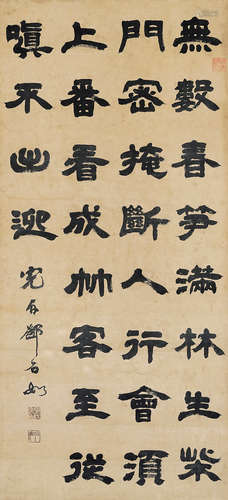 無數春笋滿林生柴
門密掩斷人行會須
上番看成竹客至從
嗔不出迎
完白鄧石如